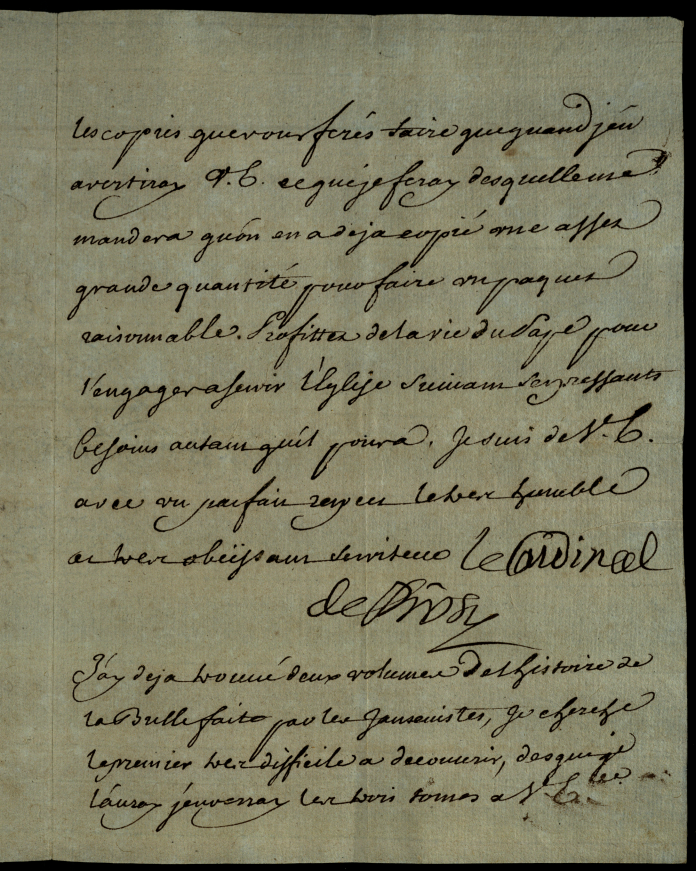 les copies que vous ferés faire que quand j'en
avertiray V. E. ce que je feray des qu'elle me
mandera qu'on en a deja copié une asses
grande quantité pour faire un paquet
raisonnable. Profittez de la vie du Pape pour
l'engager a servir l'Eglise suivant ses pressants
besoins autant qu'il poura. Je suis de V. E.
avec un parfait respect le tres humble
et tres obeïssant serviteur le Cardinal
de
J'ay deja trouvé deux volumes de l'histoire de
la Bulle faite par les Jansenistes, je cherche
le premier tres difficile a decouvrir, des que je
l'auray j'envoyeray les trois tomes a V. E.